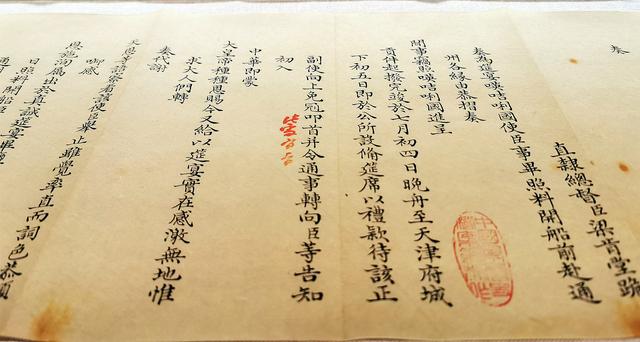 奏
直隸總督臣梁肯堂跪
奏為筵宴𠸄咭唎國使臣事畢照料開船前赴通
州各緣由恭摺奏
聞事竊照𠸄咭唎國進呈
貢件起撥完竣於七月初四日晚舟至天津府城
下初五日即於公所設俻筵席以禮欵待該正
副使向上免冠叩首并令通事轉向臣等告知
初入
中華即蒙
大皇帝種種恩賜今又給以筵宴實在感激無地惟
求大人們轉
奏代謝
天恩等語察看該使臣舉止雖覺率直而詞色恭順
啣感
恩施洵屬出於真誠筵宴畢
日照料開船
通